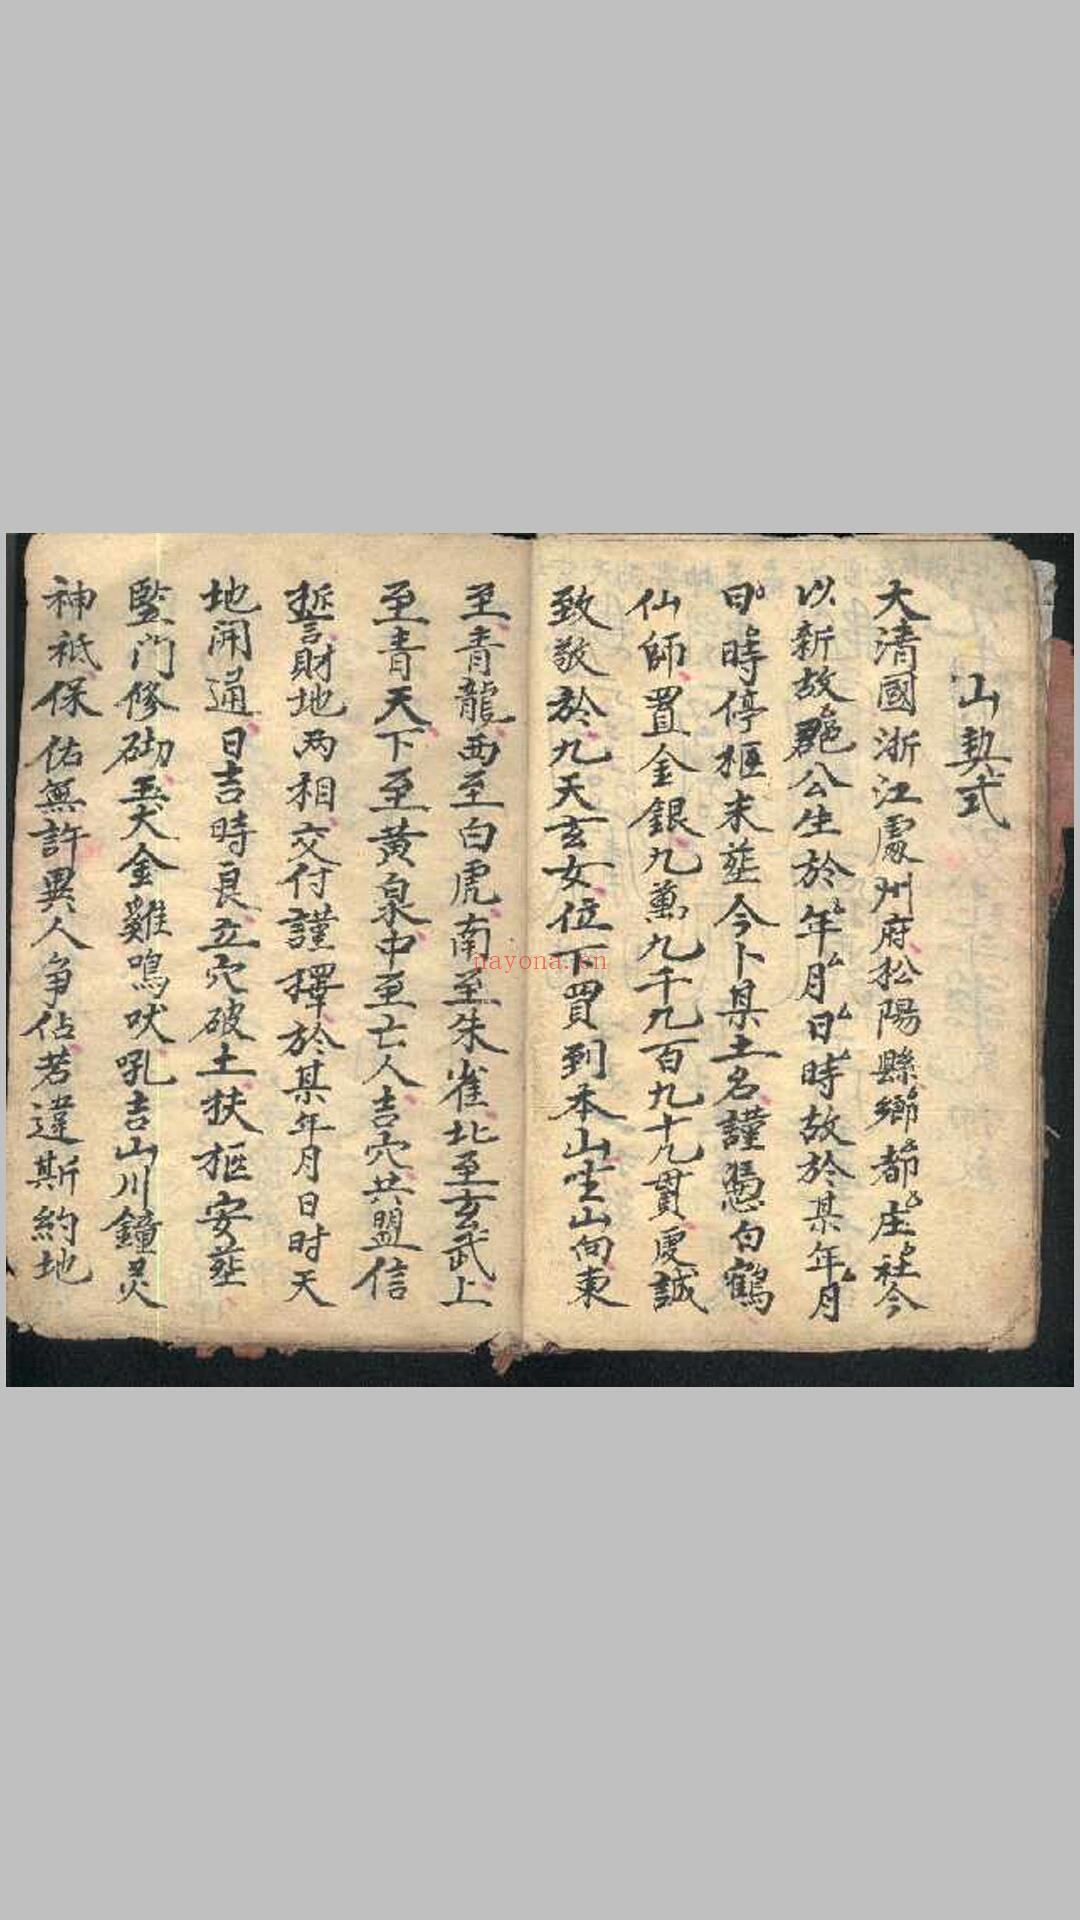 山契式
大清國浙江處州府松陽縣鄉都庄社今
以新故公生於年月日時故於某年月
日時停柩未塟今卜某土名謹憑白鶴
仙師置金銀九萬九千九百九十九貫虔誠
致敬於九天玄女位下買到本山坐山向東
至青龍西至白虎南至朱雀北至玄武上
至青天下至黄泉中至亡人吉穴共盟信
誓財地两相交付謹擇於某年月日时天
地開通日吉時良立穴破土扶柩安塟
監門修砌玉犬金雞鳴吠吼吉山川鐘灵
神祗保佑無許異人争佔若違斯約地
nayona.cn